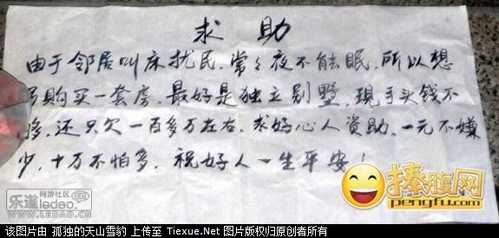 求 助
由于邻居叫床扰民，常々夜不能眠，所以想
购买一套房，最好是独立别墅，现手头钱不
够，还只欠一百多万左右，求好心人资助，一元不嫌
少，十万不怕多，祝好人一生平安！
乐道 网游社区
LEDAO.COM
捧腹网
pengfu.com
该图片由 孤独的天山雪豹 上传至 Tiexue.Net 图片版权归原创者所有